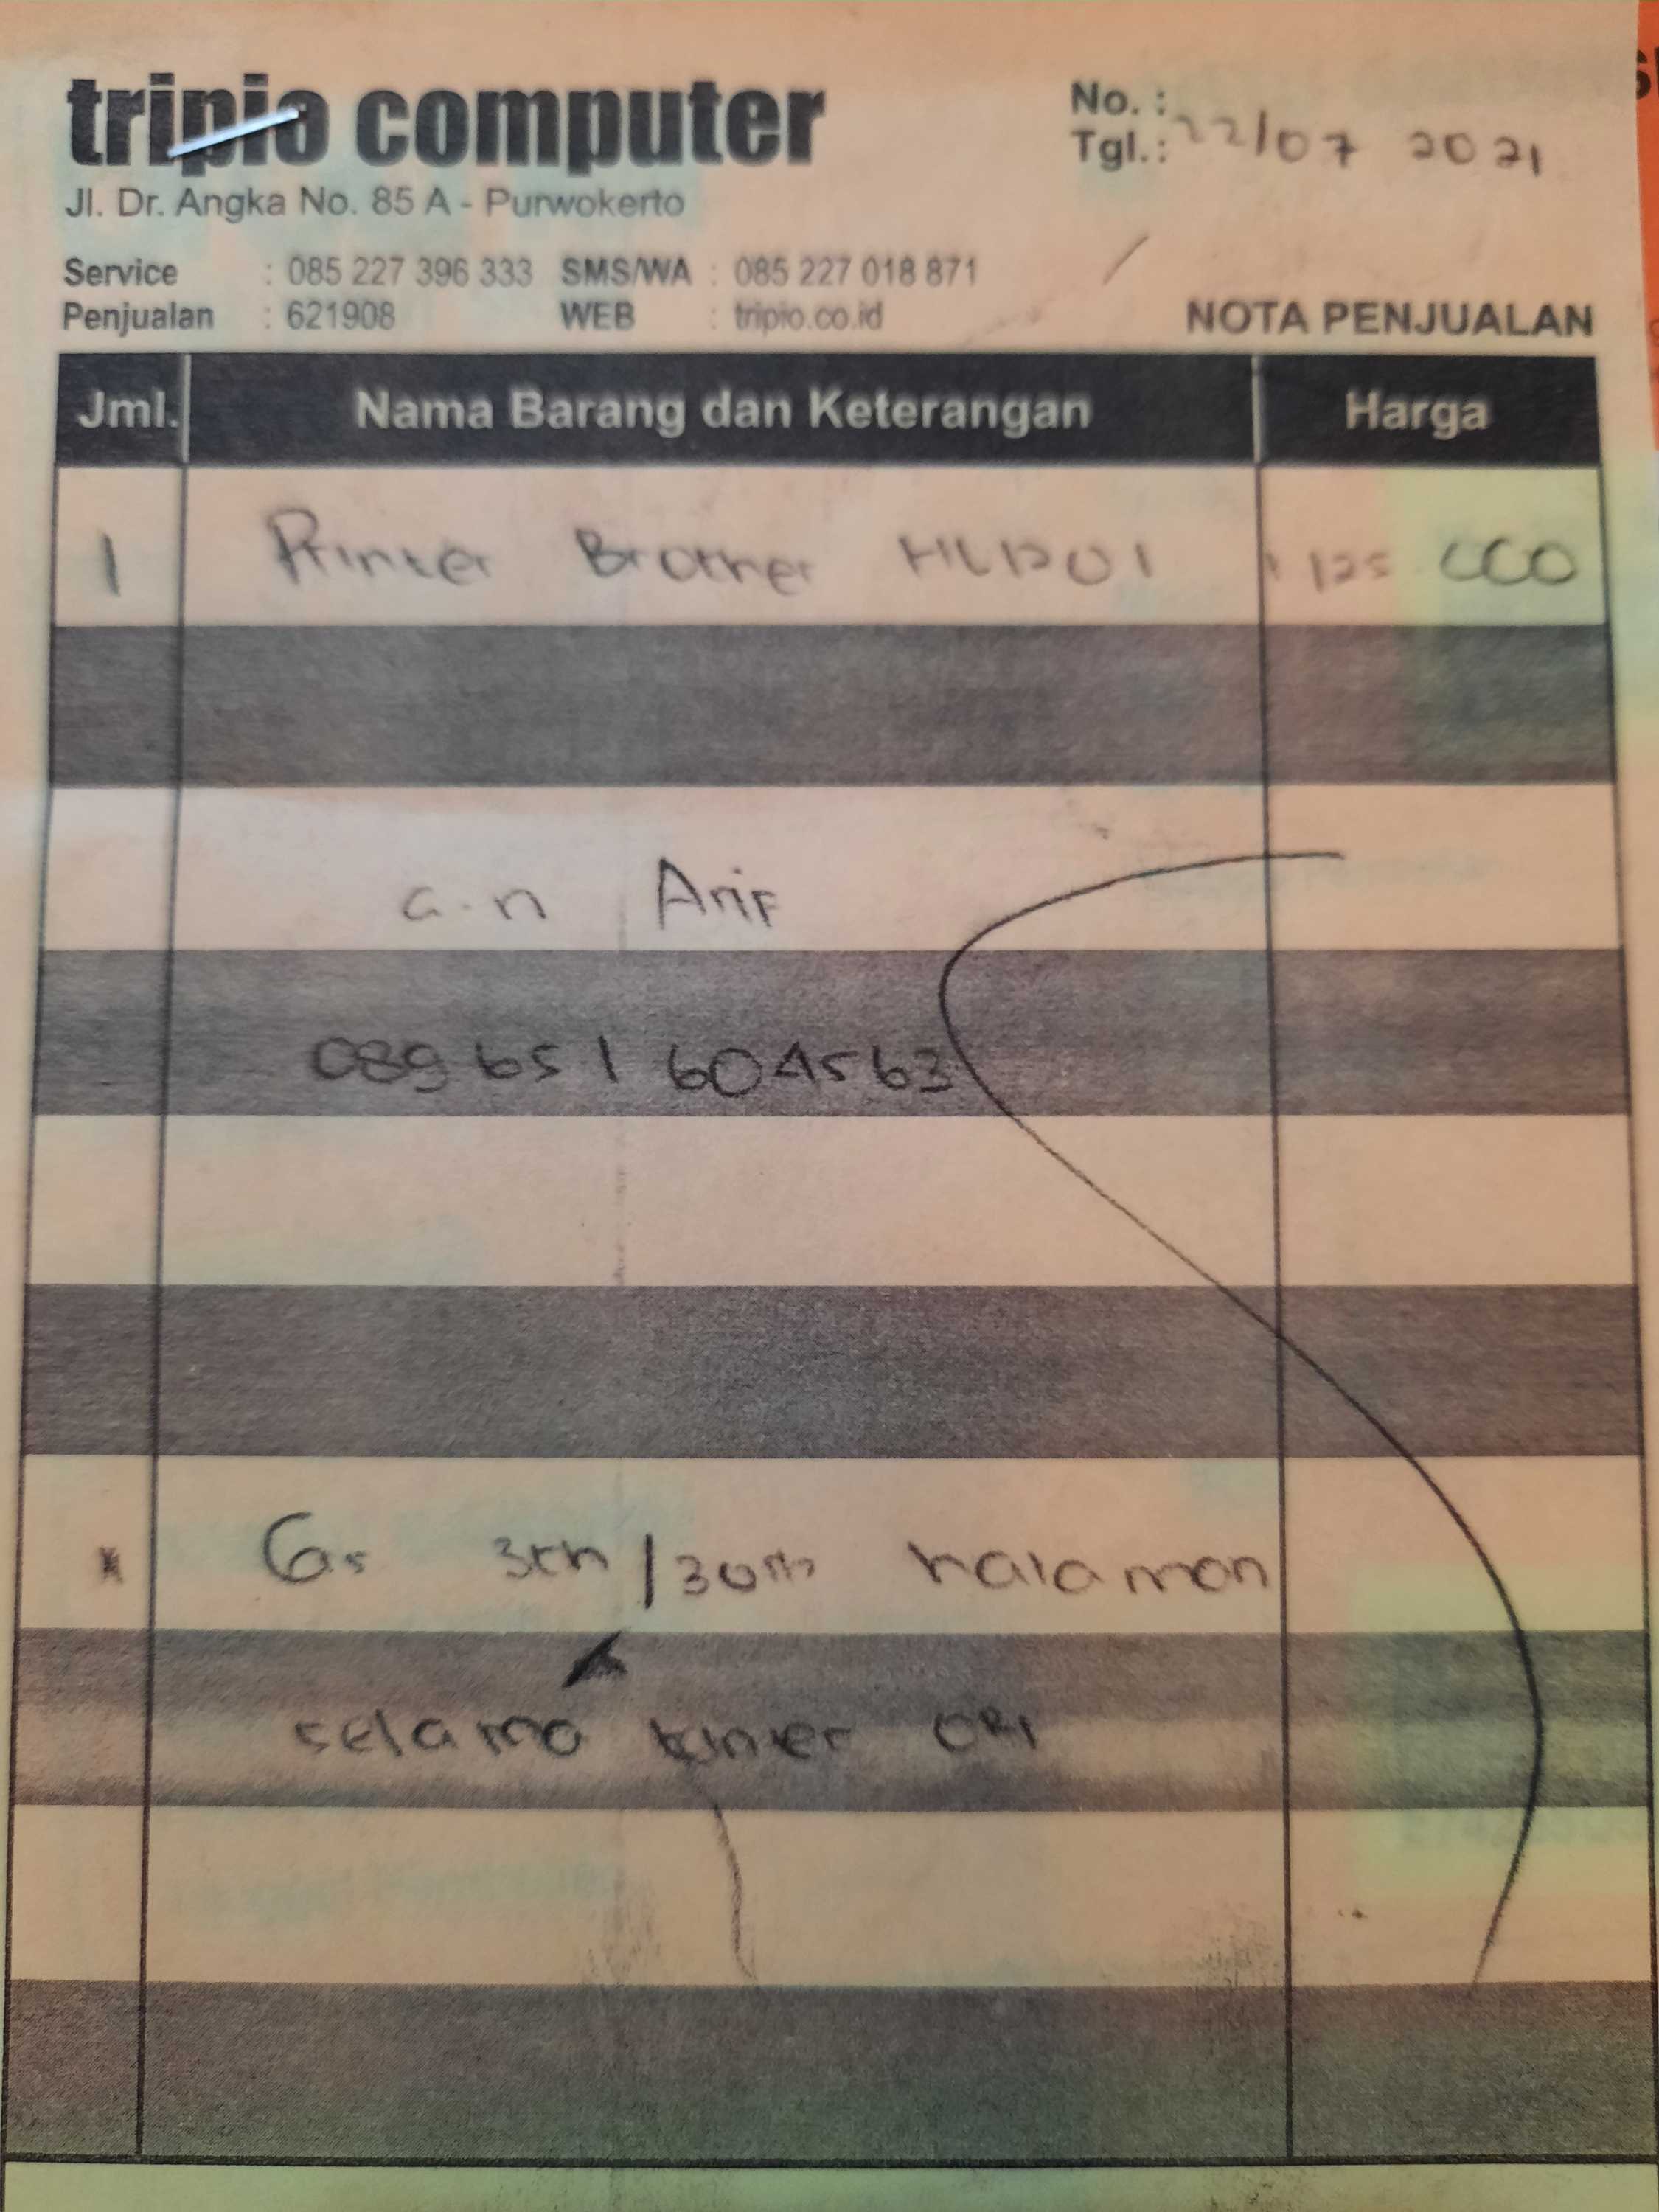 tripio computer
Jl. Dr. Angka No. 85 A - Purwokerto
No. :
Tgl. : 22/07 2021
Service : 085 227 396 333 SMS/WA : 085 227 018 871
Penjualan : 621908 WEB : tripio.co.id
NOTA PENJUALAN
Jml. Nama Barang dan Keterangan Harga
1 Printer Brother HL1201 1 125 000
a.n Arif
089 651 604563
* Gs 3th / 30rb halaman
selama toner ORI